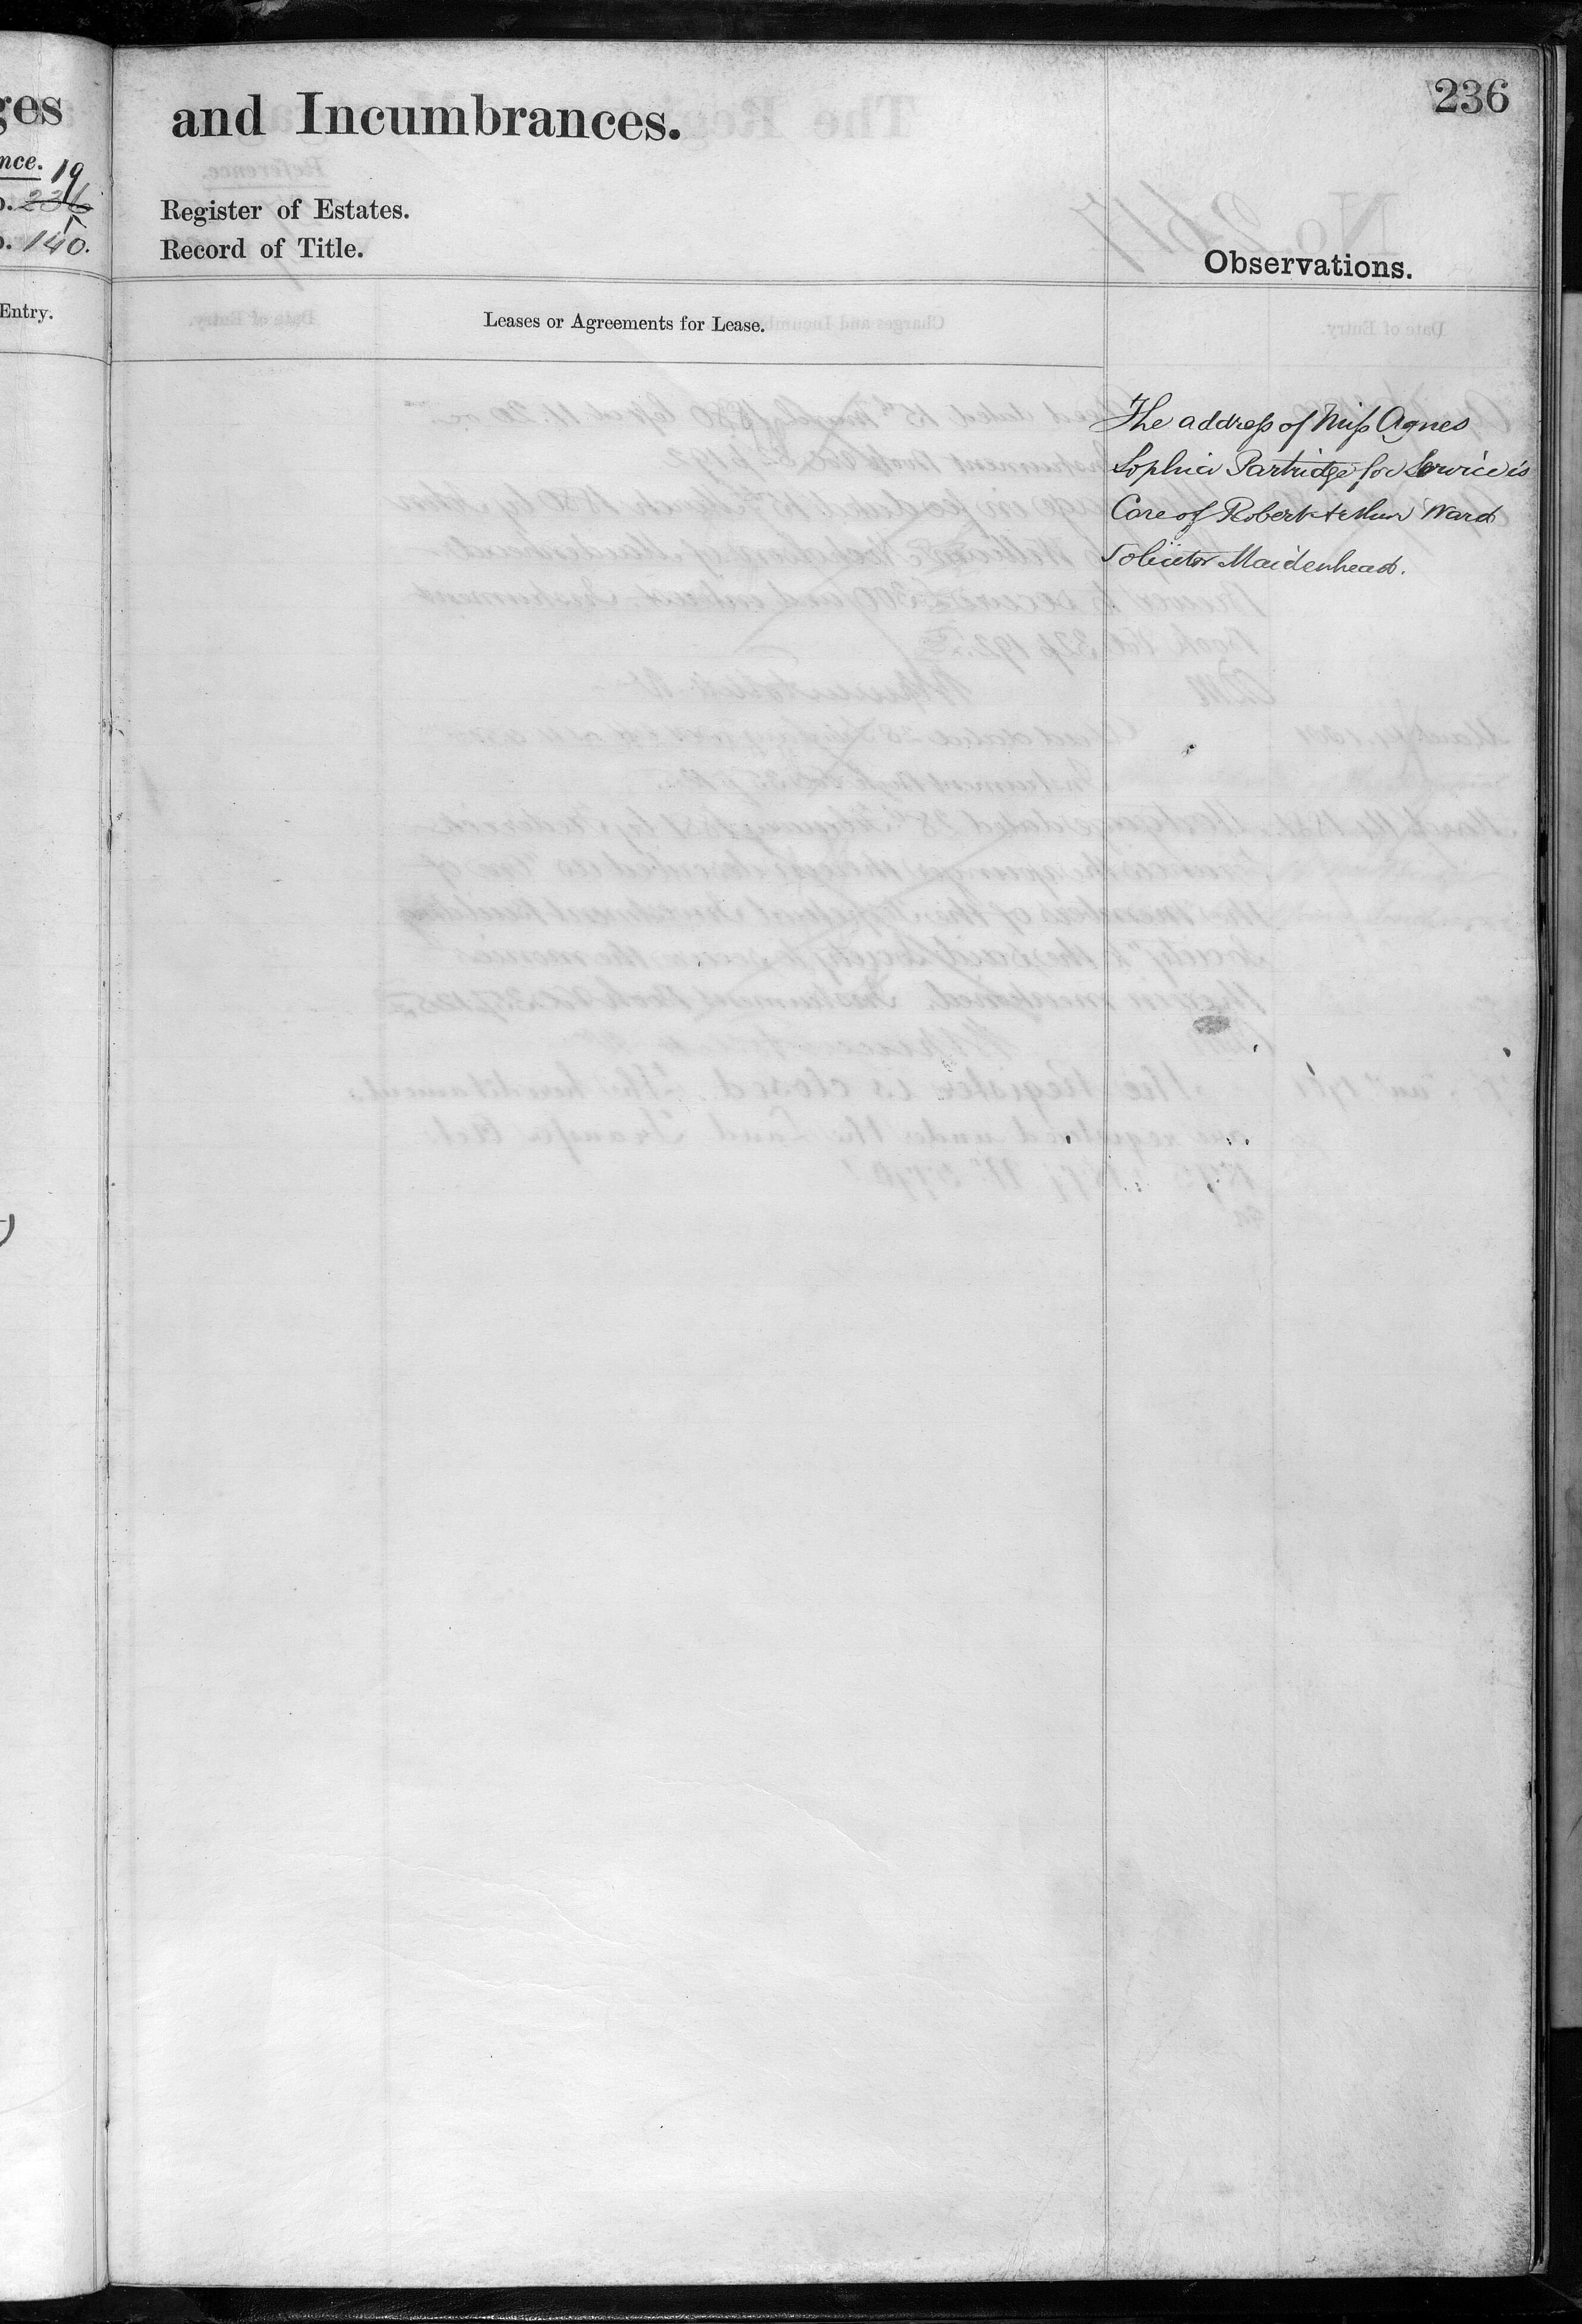 236
ges
and Incumbrances.
nce.
19
o. 236
Register of Estates.
o. 140.
Record of Title.
Observations.
Entry.
Leases or Agreements for Lease.
The address of Miss Agnes
Sophia Partridge for Service is
Care of Robert Arthur Ward
Solicitor Maidenhead.